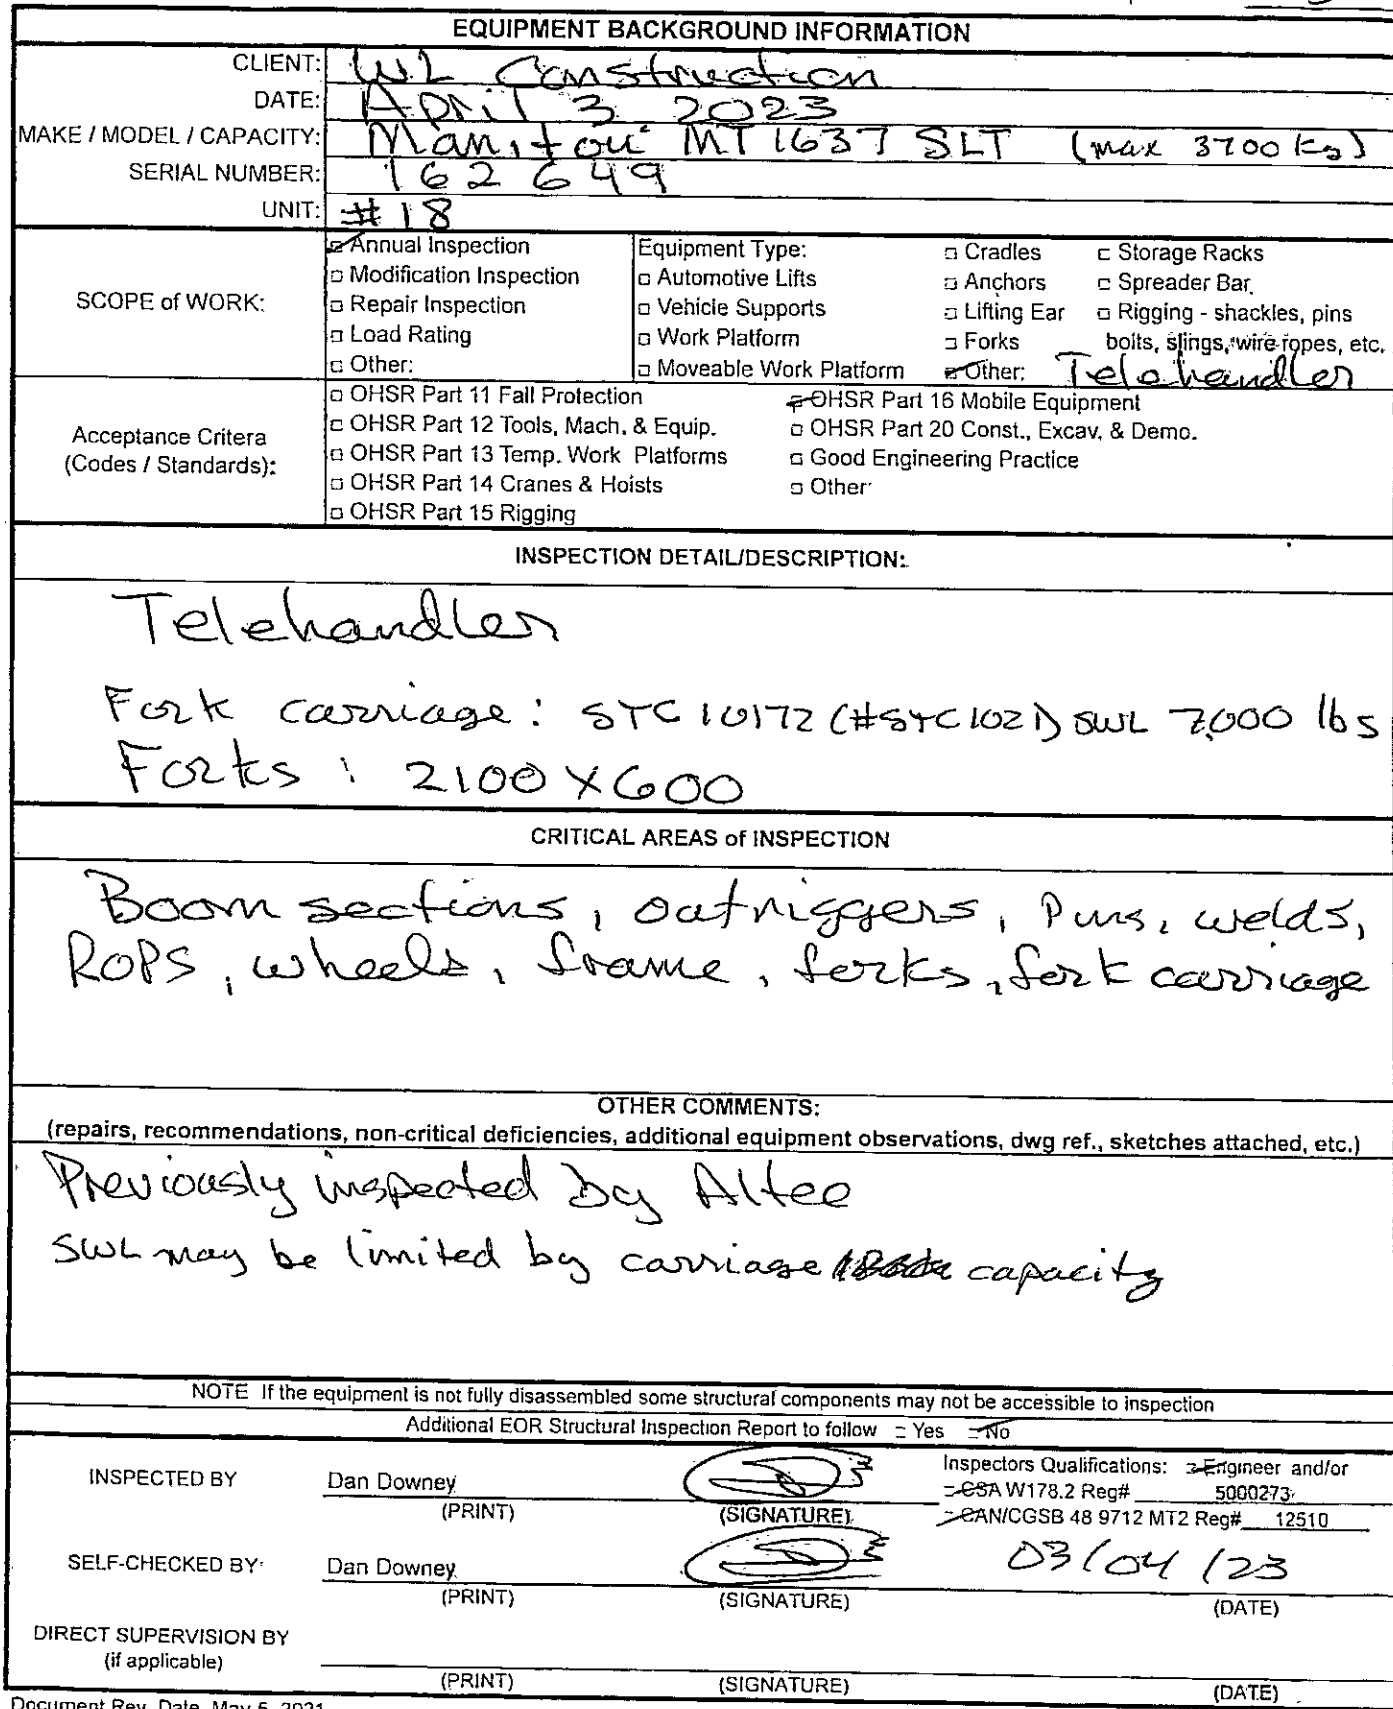 EQUIPMENT BACKGROUND INFORMATION
CLIENT: WL Construction
DATE: April 3 2023
MAKE / MODEL / CAPACITY: Manitou MT 1637 SLT (max 3700 kg)
SERIAL NUMBER: 162649
UNIT: #18
SCOPE of WORK:
Annual Inspection
Modification Inspection
Repair Inspection
Load Rating
Other:
Equipment Type:
Automotive Lifts
Vehicle Supports
Work Platform
Moveable Work Platform
Cradles
Anchors
Lifting Ear
Forks
Other: Telehandler
Storage Racks
Spreader Bar
Rigging - shackles, pins
bolts, slings, wire ropes, etc.
Acceptance Critera
(Codes / Standards):
OHSR Part 11 Fall Protection
OHSR Part 12 Tools, Mach. & Equip.
OHSR Part 13 Temp. Work Platforms
OHSR Part 14 Cranes & Hoists
OHSR Part 15 Rigging
OHSR Part 16 Mobile Equipment
OHSR Part 20 Const., Excav, & Demo.
Good Engineering Practice
Other
INSPECTION DETAIL/DESCRIPTION:
Telehandler
Fork carriage: STC 10172 (#STC1021) SWL 7,000 lbs
Forks: 2100 X 600
CRITICAL AREAS of INSPECTION
Boom sections, outriggers, Pins, welds,
ROPS, wheels, frame, forks, fork carriage
OTHER COMMENTS:
(repairs, recommendations, non-critical deficiencies, additional equipment observations, dwg ref., sketches attached, etc.)
Previously inspected by Altec
SWL may be limited by carriage capacity
NOTE If the equipment is not fully disassembled some structural components may not be accessible to inspection
Additional EOR Structural Inspection Report to follow Yes No
INSPECTED BY Dan Downey
(PRINT) (SIGNATURE)
Inspectors Qualifications: Engineer and/or
CSA W178.2 Reg# 5000273
CAN/CGSB 48 9712 MT2 Reg# 12510
SELF-CHECKED BY: Dan Downey 03/04/23
(PRINT) (SIGNATURE) (DATE)
DIRECT SUPERVISION BY
(if applicable)
(PRINT) (SIGNATURE) (DATE)
Document Rev. Date May 5, 2021